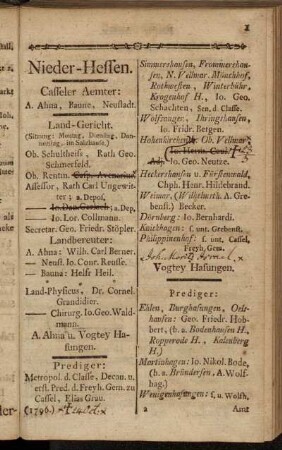 1
Nieder-Hessen.
Casseler Aemter:
A. Ahna, Baune, Neustadt.
Land-Gericht.
(Sitzung: Montag, Dienstag, Don-
nerstag, im Salzhause.)
Ob. Schultheis, Rath Geo.
Schmerfeld.
Ob. Rentm. Casp. Avenarius
Assessor, Rath Carl Ungewit-
ter; a. Depos.
— Io. Dan. a. Dep.
— Io. Lor. Collmann.
Secretar. Geo. Friedr. Stöpler.
Landbereuter:
A. Ahna: Wilh. Carl Berner.
— Neust. Io. Conr. Reusse.
— Bauna: Hessr Heil.
Land-Physicus, Dr. Cornel.
Grandidier.
— Chirurg. Io. Geo. Wald-
mann.
A. Ahna u. Vogtey Ha-
sungen.
Prediger:
Metropol. d. Classe, Decan. u.
erst. Pred. d. Freyh. Gem. zu
Cassel, Elias Grau.
(1796.)
Simmershausen, Frommershau-
sen, N. Vellmar, Mönchhof,
Rothwesten, Winterbühr,
Krugenhof H., Io. Geo.
Schachten, Sen. d. Classe.
Wolfsanger, Ihringshausen,
Io. Fridr. Bergen.
Hohenkirchen, Ob. Vellmar
Io. Herm. Cour.
Adj. Io. Geo. Neutze.
Heckershausen u. Fürstenwald,
Chph. Hnr. Hildebrand.
Weimar, (Wilhelmsth. A. Gre-
benst.) Becker.
Dörnberg: Io. Bernhardi.
Knickhagen: s. unt. Grebenst.
Philippinenhof: s. unt. Cassel,
Freyh. Gem.
Vogtey Hasungen.
Prediger:
Ehlen, Burghasungen, Oels-
hausen: Geo. Friedr. Hob-
bert, (b. a. Bodenhausen H.,
Ropperode H., Kalenberg
H.)
Martinhagen: Io. Nikol. Bode,
(b. a. Bründersen, A. Wolf-
hag.)
Wenigenhasungen: s. u. Wolfh.
a Amt